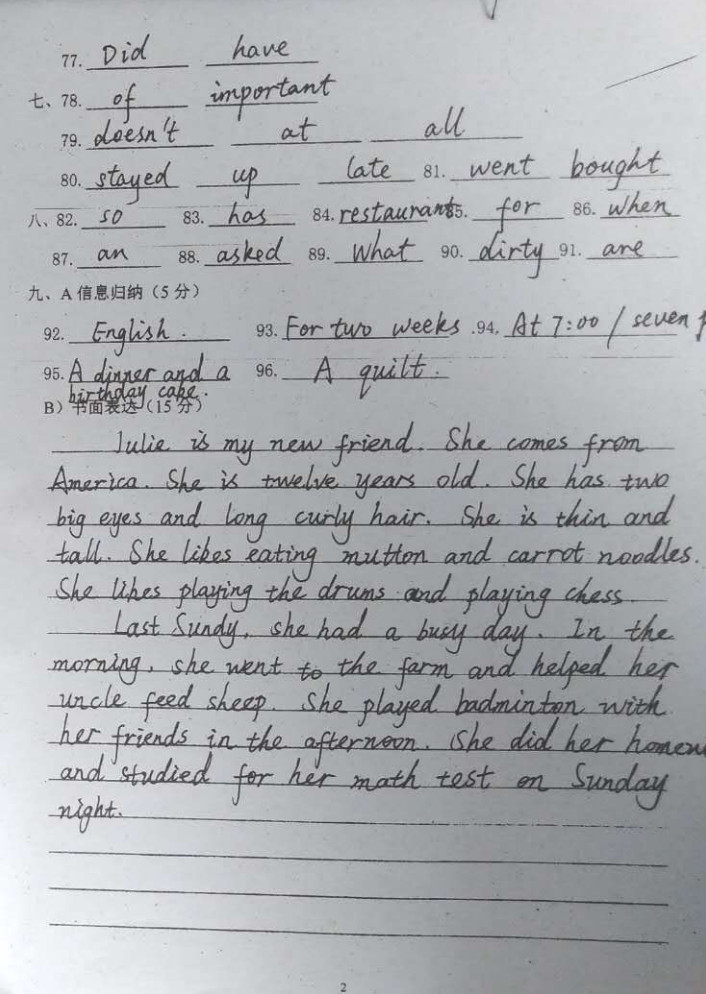 77. Did have
七、78. of important
79. doesn't at all
80. stayed up late 81. went bought
八、82. so 83. has 84. restaurants 85. for 86. when
87. an 88. asked 89. What 90. dirty 91. are
九、A 信息归纳（5 分）
92. English. 93. For two weeks. 94. At 7:00 / seven
95. A dinner and a birthday cake. 96. A quilt.
B）书面表达（15 分）
Julie is my new friend. She comes from
America. She is twelve years old. She has two
big eyes and long curly hair. She is thin and
tall. She likes eating mutton and carrot noodles.
She likes playing the drums and playing chess.
Last Sundy, she had a busy day. In the
morning, she went to the farm and helped her
uncle feed sheep. She played badminton with
her friends in the afternoon. She did her homew
and studied for her math test on Sunday
night.
2